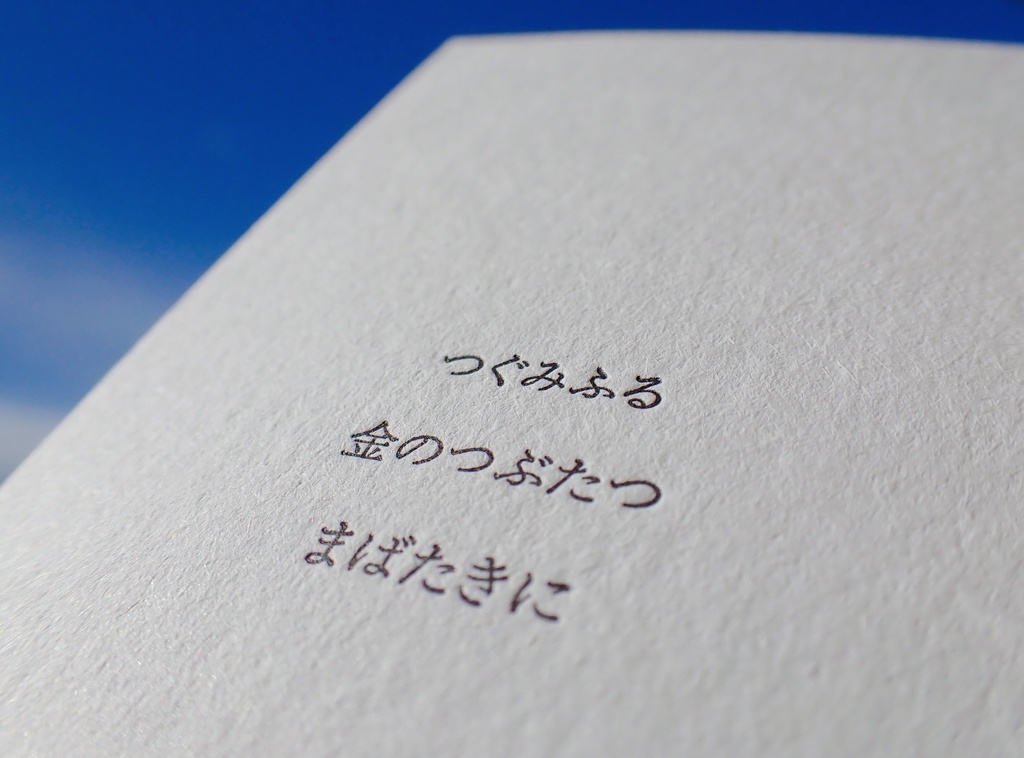 つぐみふる
金のつぶたつ
まばたきに